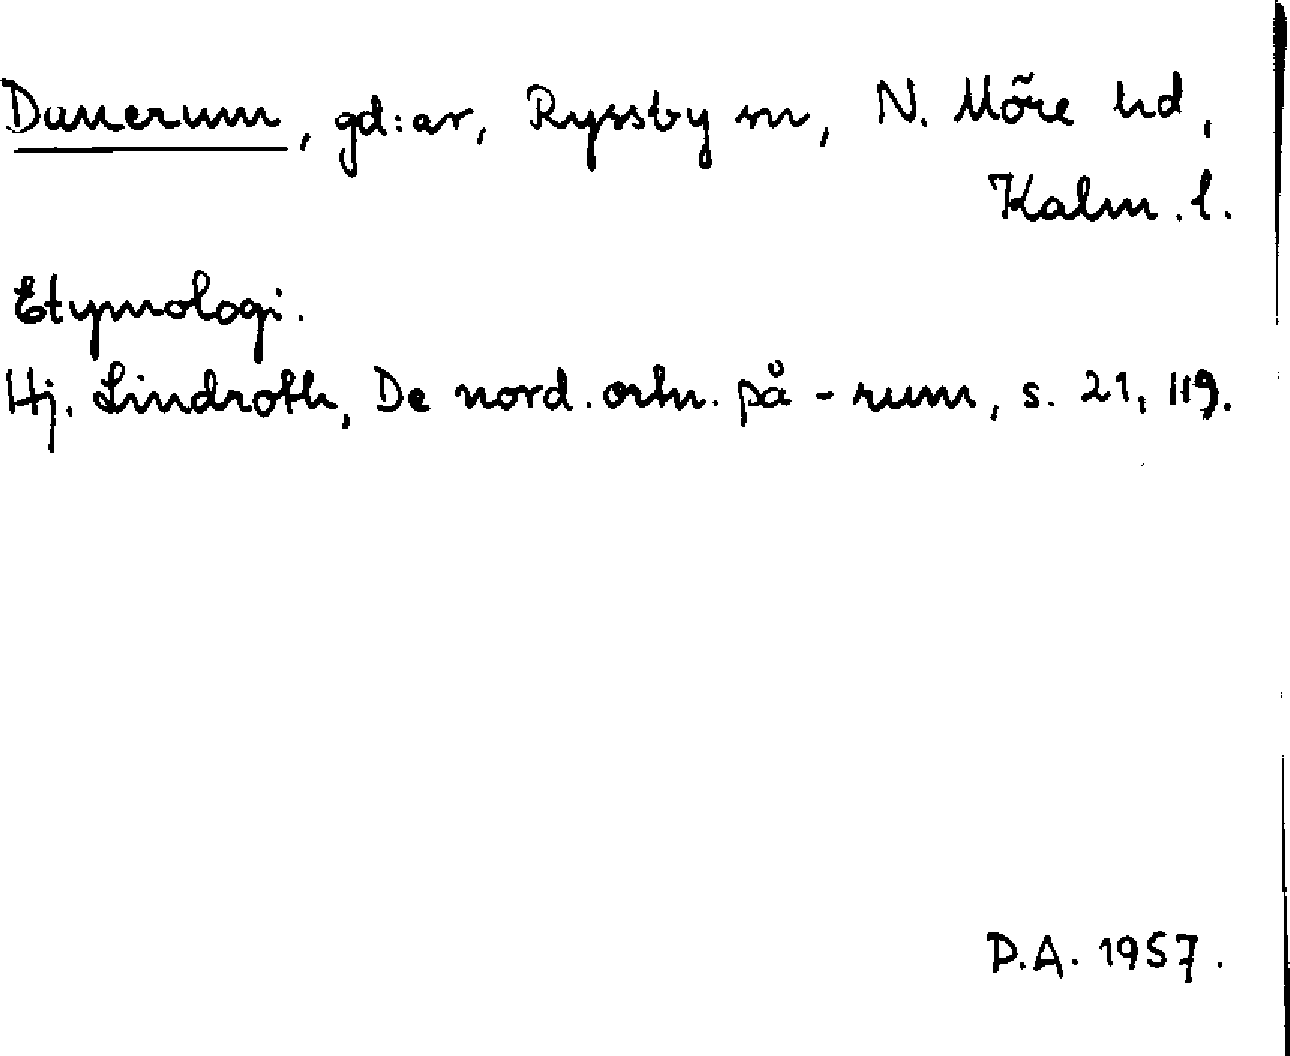 Dunnerum, gd:ar, Ryssby sn, N. Möre hd,
Kalm. l.
Etymologi.
Hj. Lindroth, De nord. ortn. på -rum, s. 21, 119.
D.A. 1957.